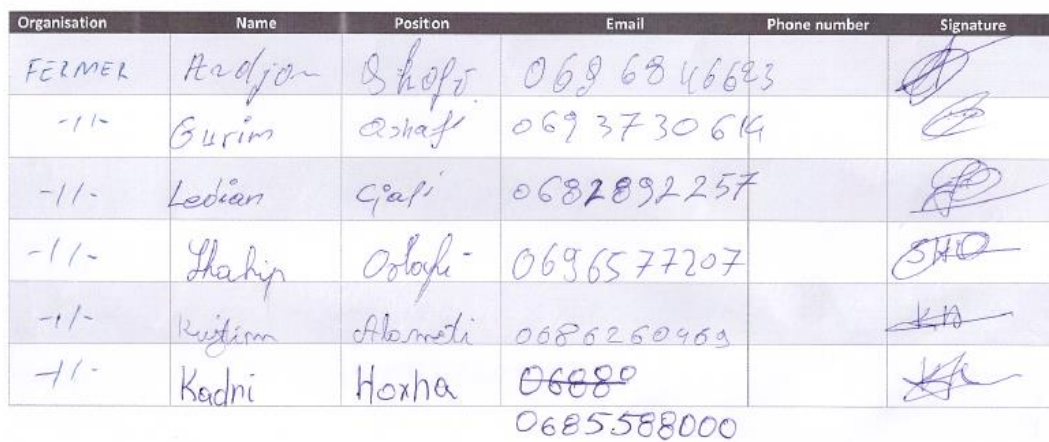 Organisation Name Position Email Phone number Signature
FERMER Ardjan Shofi 069 68 46623
-//- Gurim Qshafi 069 3730614
-//- Ledian Gjafi 0682892257
-//- Shahip 0696577207
-//- Kujtim Alometi 0686260469
-//- Kadri Hoxha 06880
0685588000